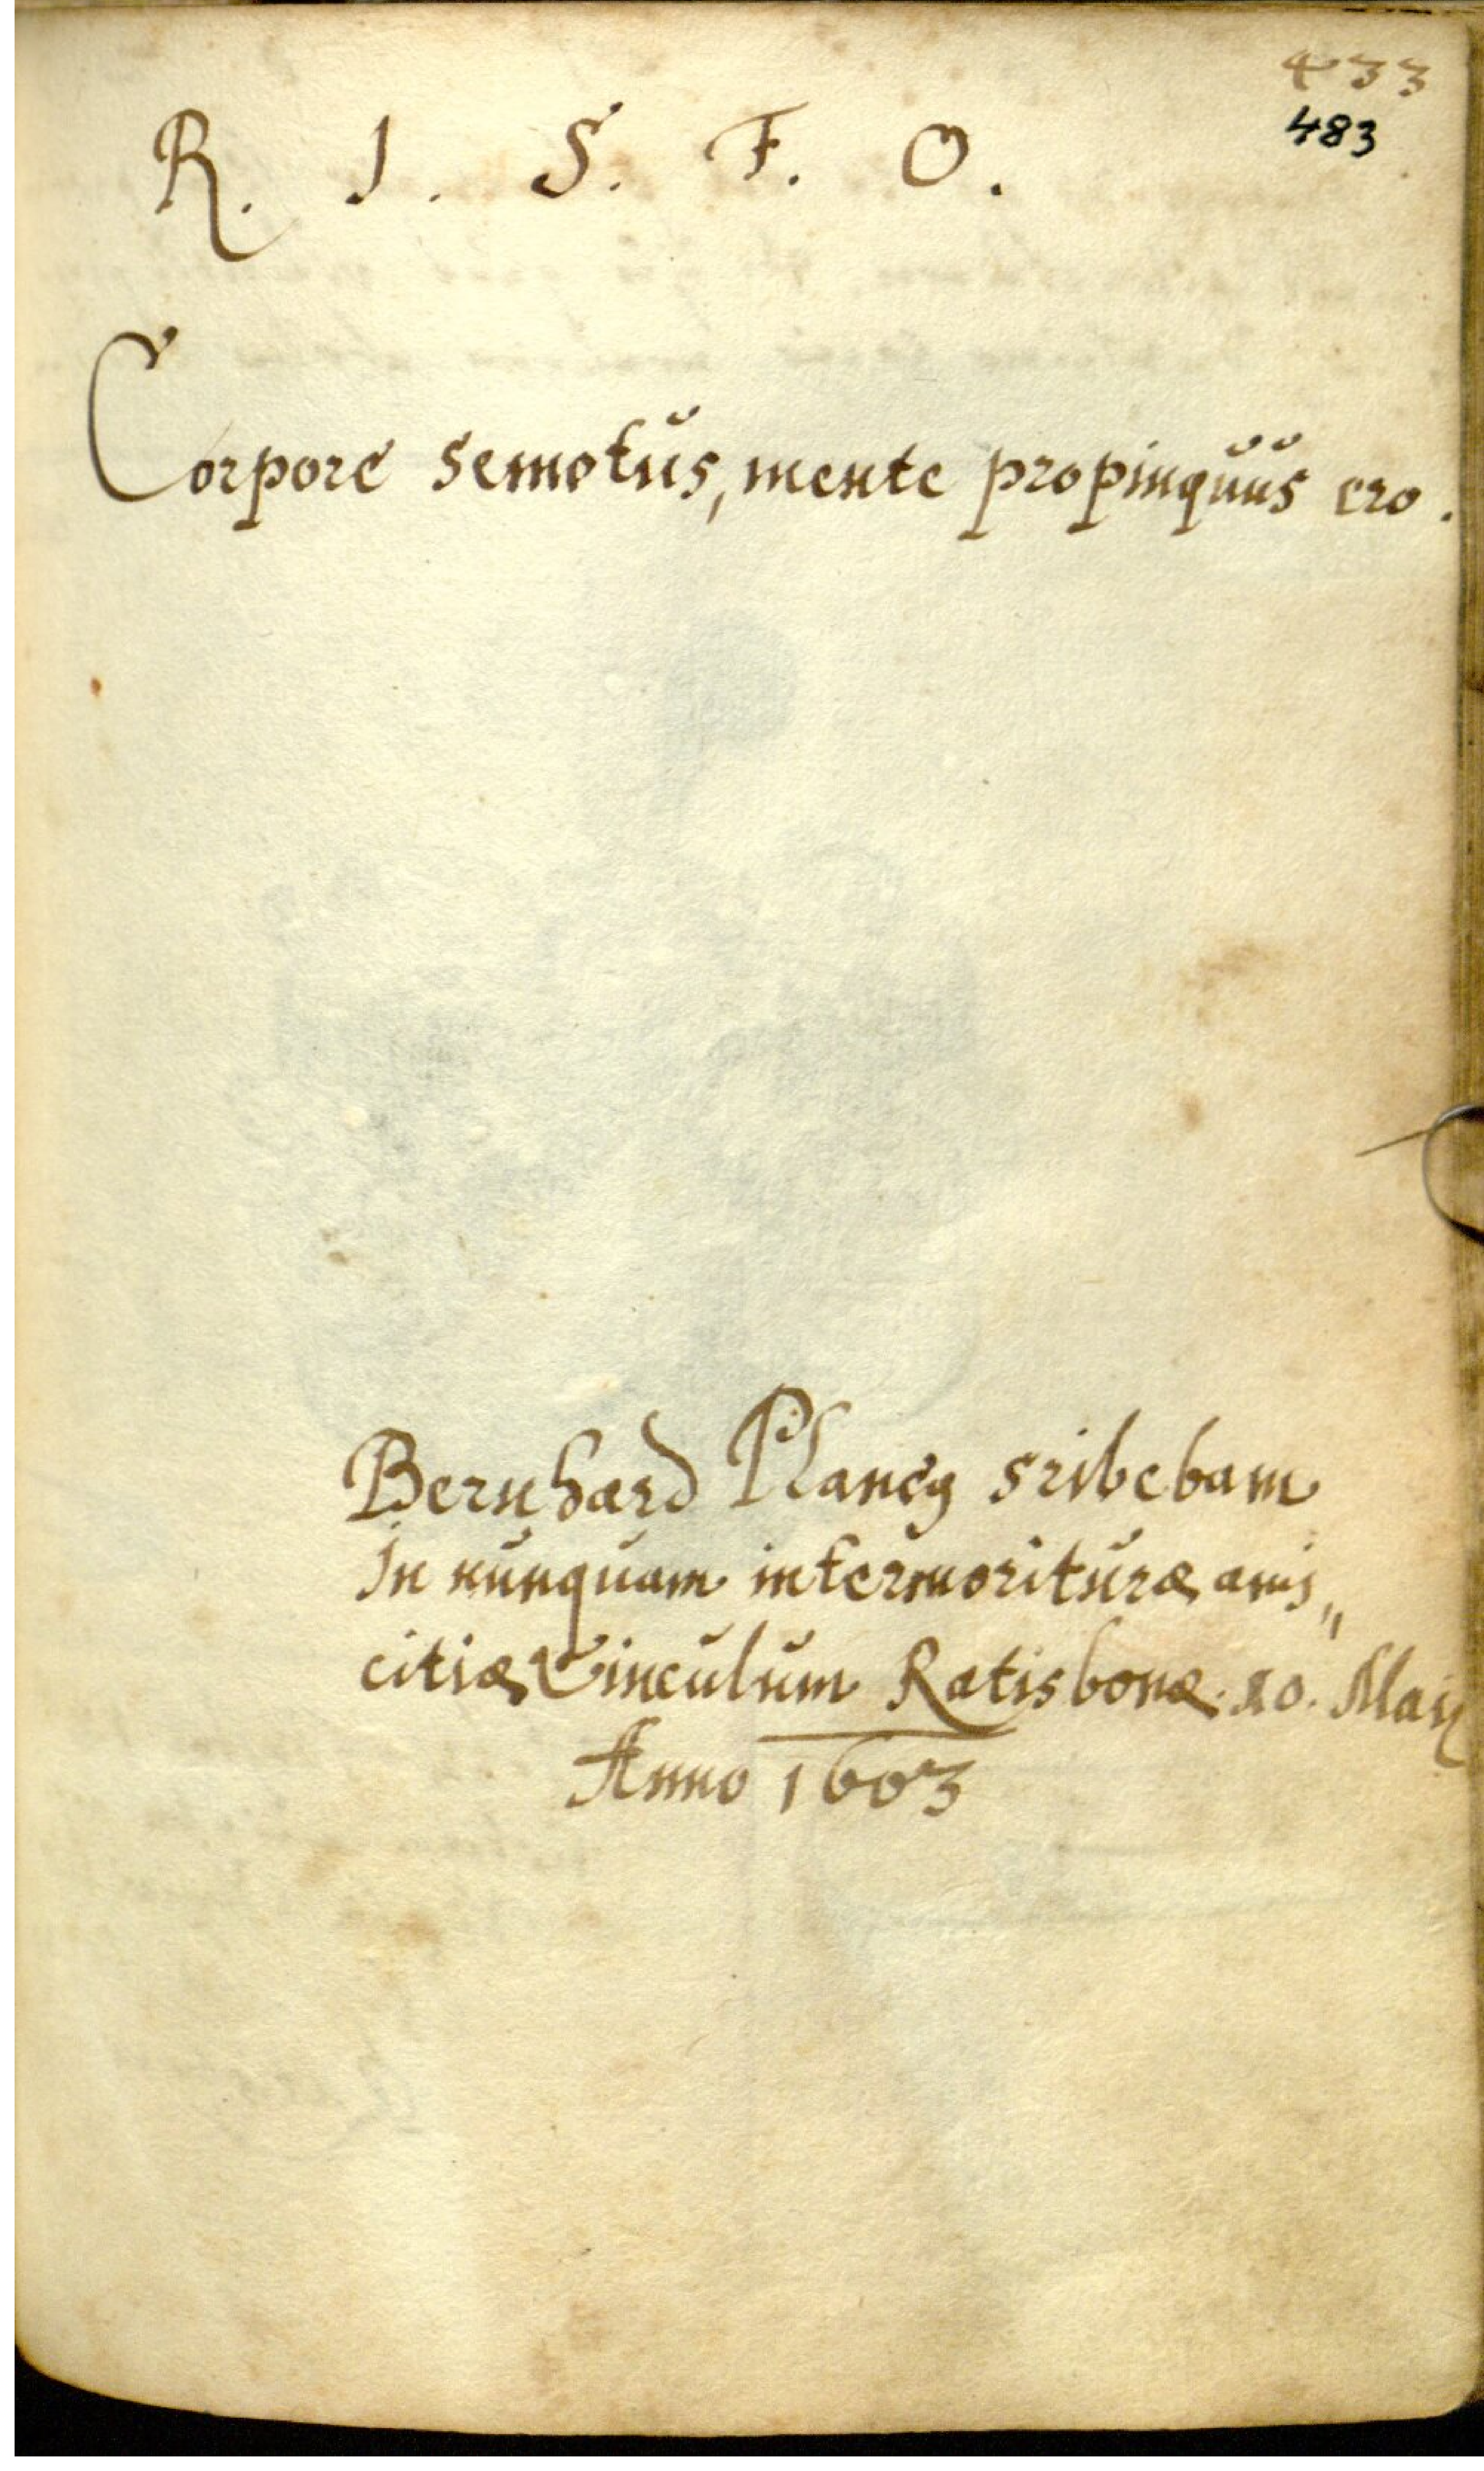 433
483
R. I. S. F. O.
Corpore semotus, mente propinquus ero.
Bernhard Plancy sribebam
In nunquam intermorituræ ami„
citiæ Vinculum Ratisbonæ. 10. Maij
Anno 1603